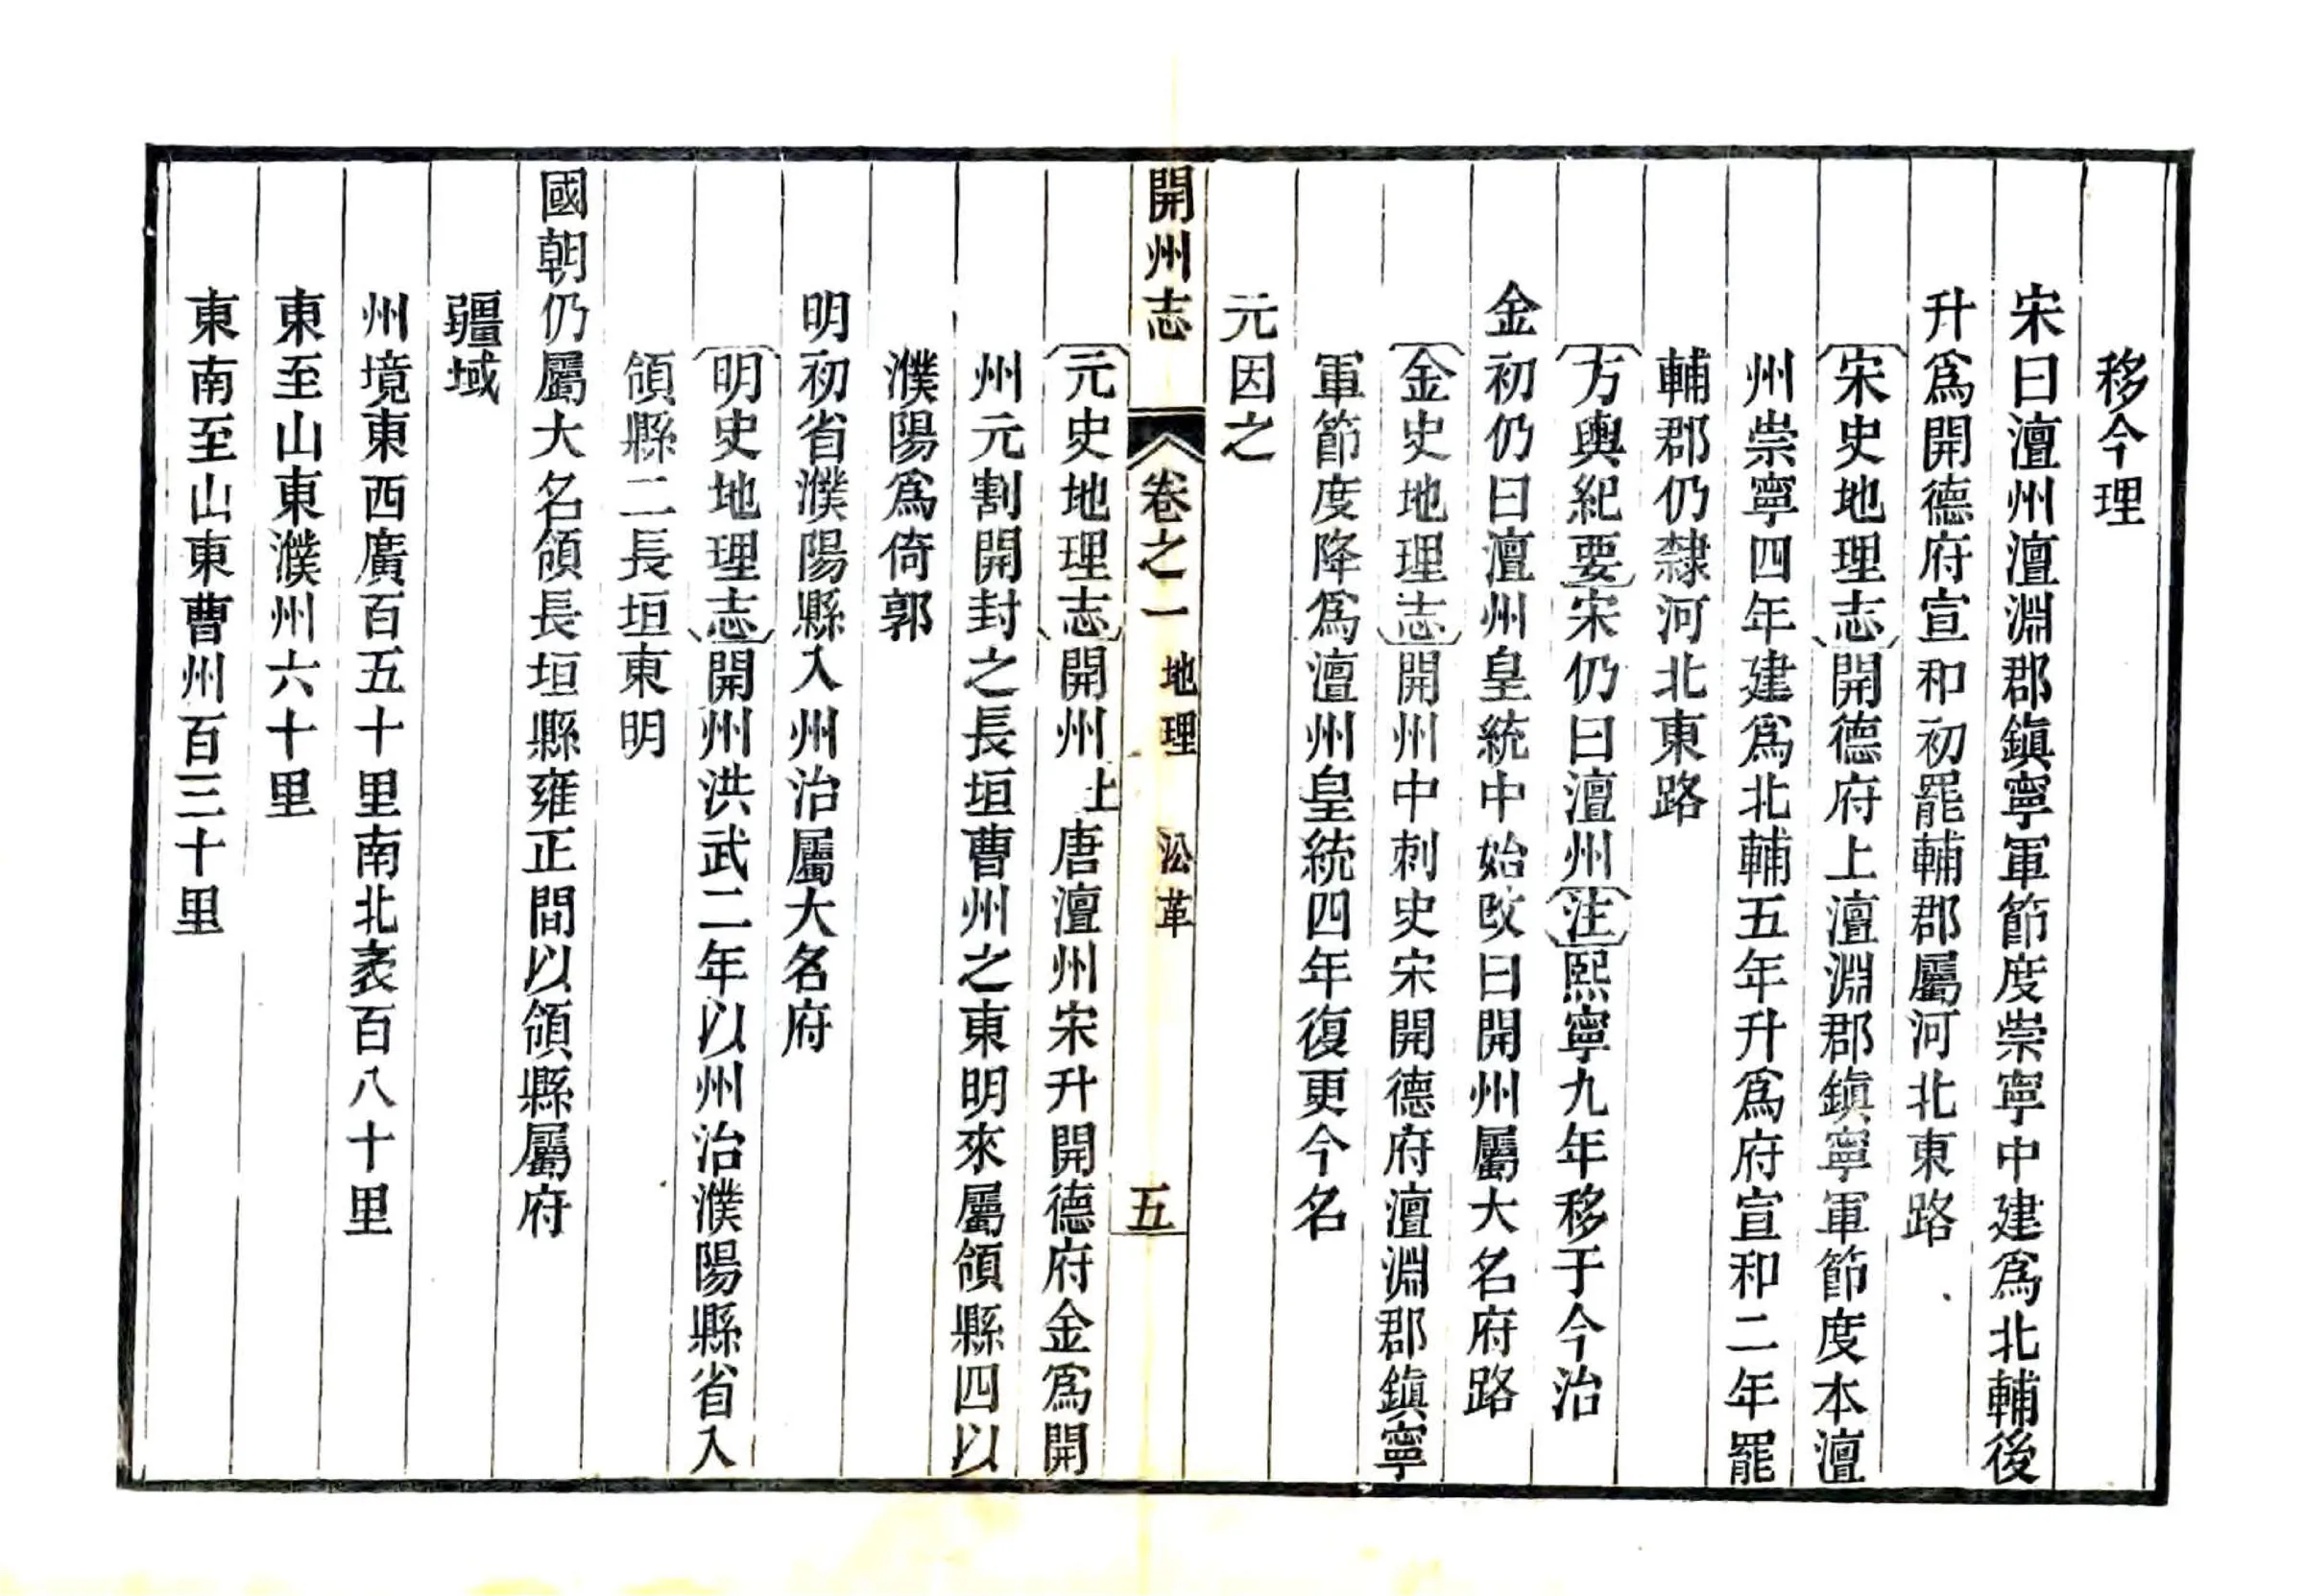 移今理
宋曰澶州澶淵郡鎮寧軍節度崇寧中建爲北輔後
升爲開德府宣和初罷輔郡屬河北東路
宋史地理志開德府上澶淵郡鎮寧軍節度本澶
州崇寧四年建爲北輔五年升爲府宣和二年罷
輔郡仍隸河北東路
方輿紀要宋仍曰澶州注熙寧九年移于今治
金初仍曰澶州皇統中始改曰開州屬大名府路
金史地理志開州中刺史宋開德府澶淵郡鎮寧
軍節度降爲澶州皇統四年復更今名
元因之
開州志 卷之一 地理 沿革 五
元史地理志開州上唐澶州宋升開德府金爲開
州元割開封之長垣曹州之東明來屬領縣四以
濮陽爲倚郭
明初省濮陽縣入州治屬大名府
明史地理志開州洪武二年以州治濮陽縣省入
領縣二長垣東明
國朝仍屬大名領長垣縣雍正間以領縣屬府
疆域
州境東西廣百五十里南北袤百八十里
東至山東濮州六十里
東南至山東曹州百三十里